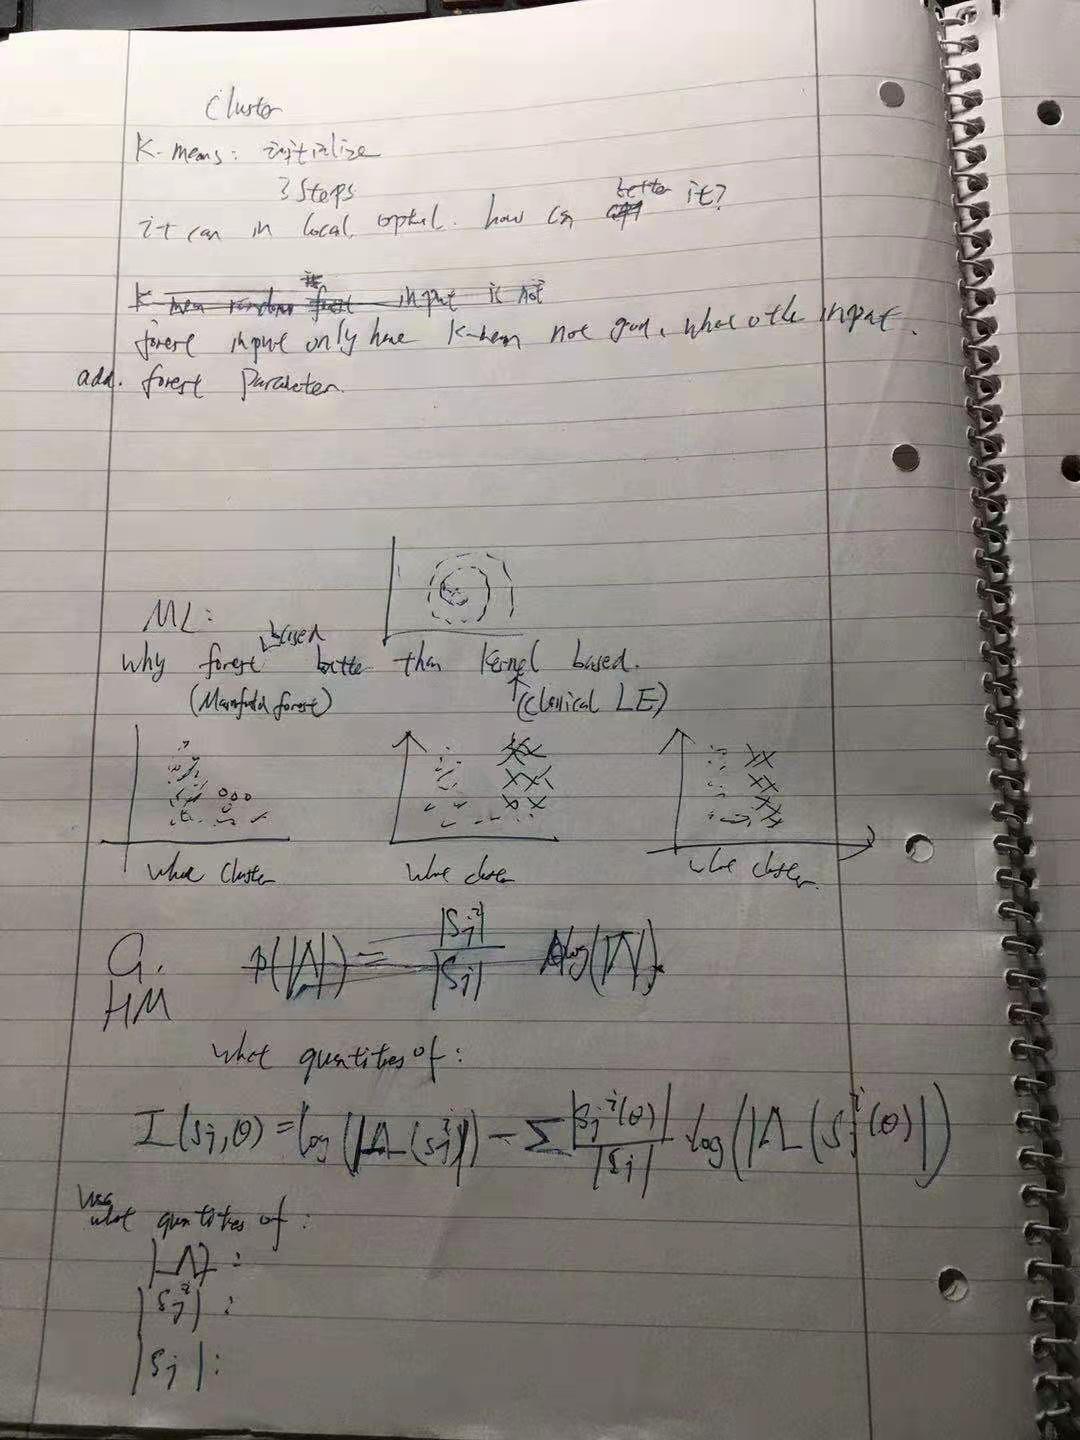 Cluster
K-means: initialize
3 Steps
it can in local optul. how can better it?
K mean random forest input is not
forest input only have K-mean not good, what othe input.
add. forest Parameter.
ML:
why forest based better than Kernel based.
(Manifold forest) (Classical LE)
what cluster what cluster what cluster.
p(|Λ|) = |Sj^i| / |Sj| log(|Λ|).
HM
what quantites of:
I(Sj,θ) = log(|Λ(Sj)|) - Σ |Sj^i(θ)| / |Sj| log(|Λ(Sj^i(θ)|)
what quantites of:
|Λ| :
|Sj^i| :
|Sj| :